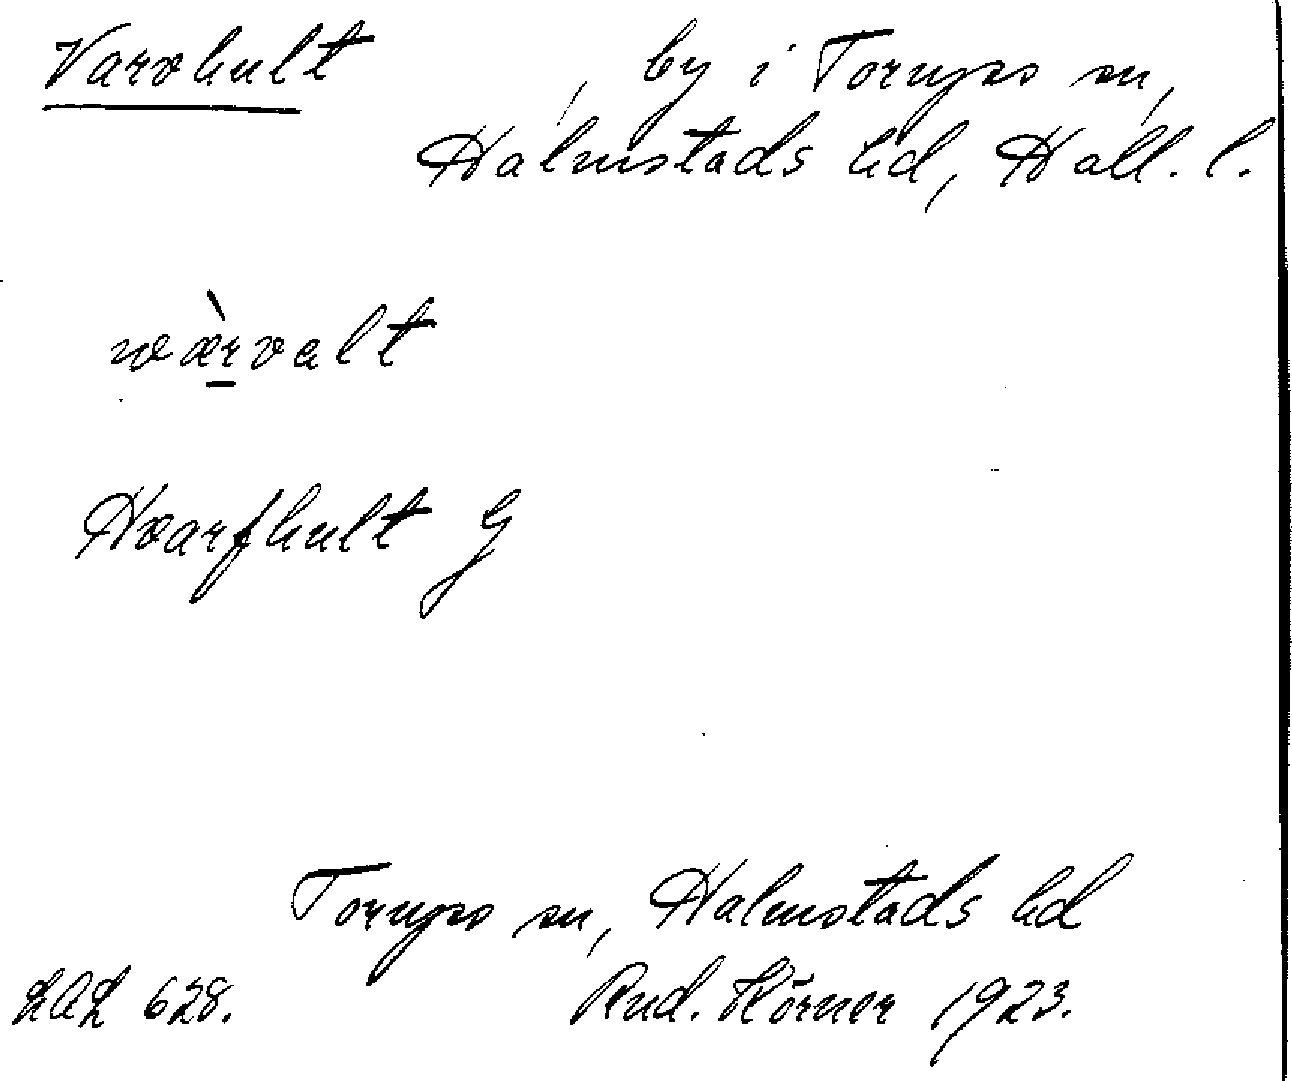 Varvhult , by i Torups sn,
Halmstads hd, Hall. l.
wærvalt
Hvarfhult G
Torups sn, Halmstads hd
LAL 628. Rud. Hörner 1923.